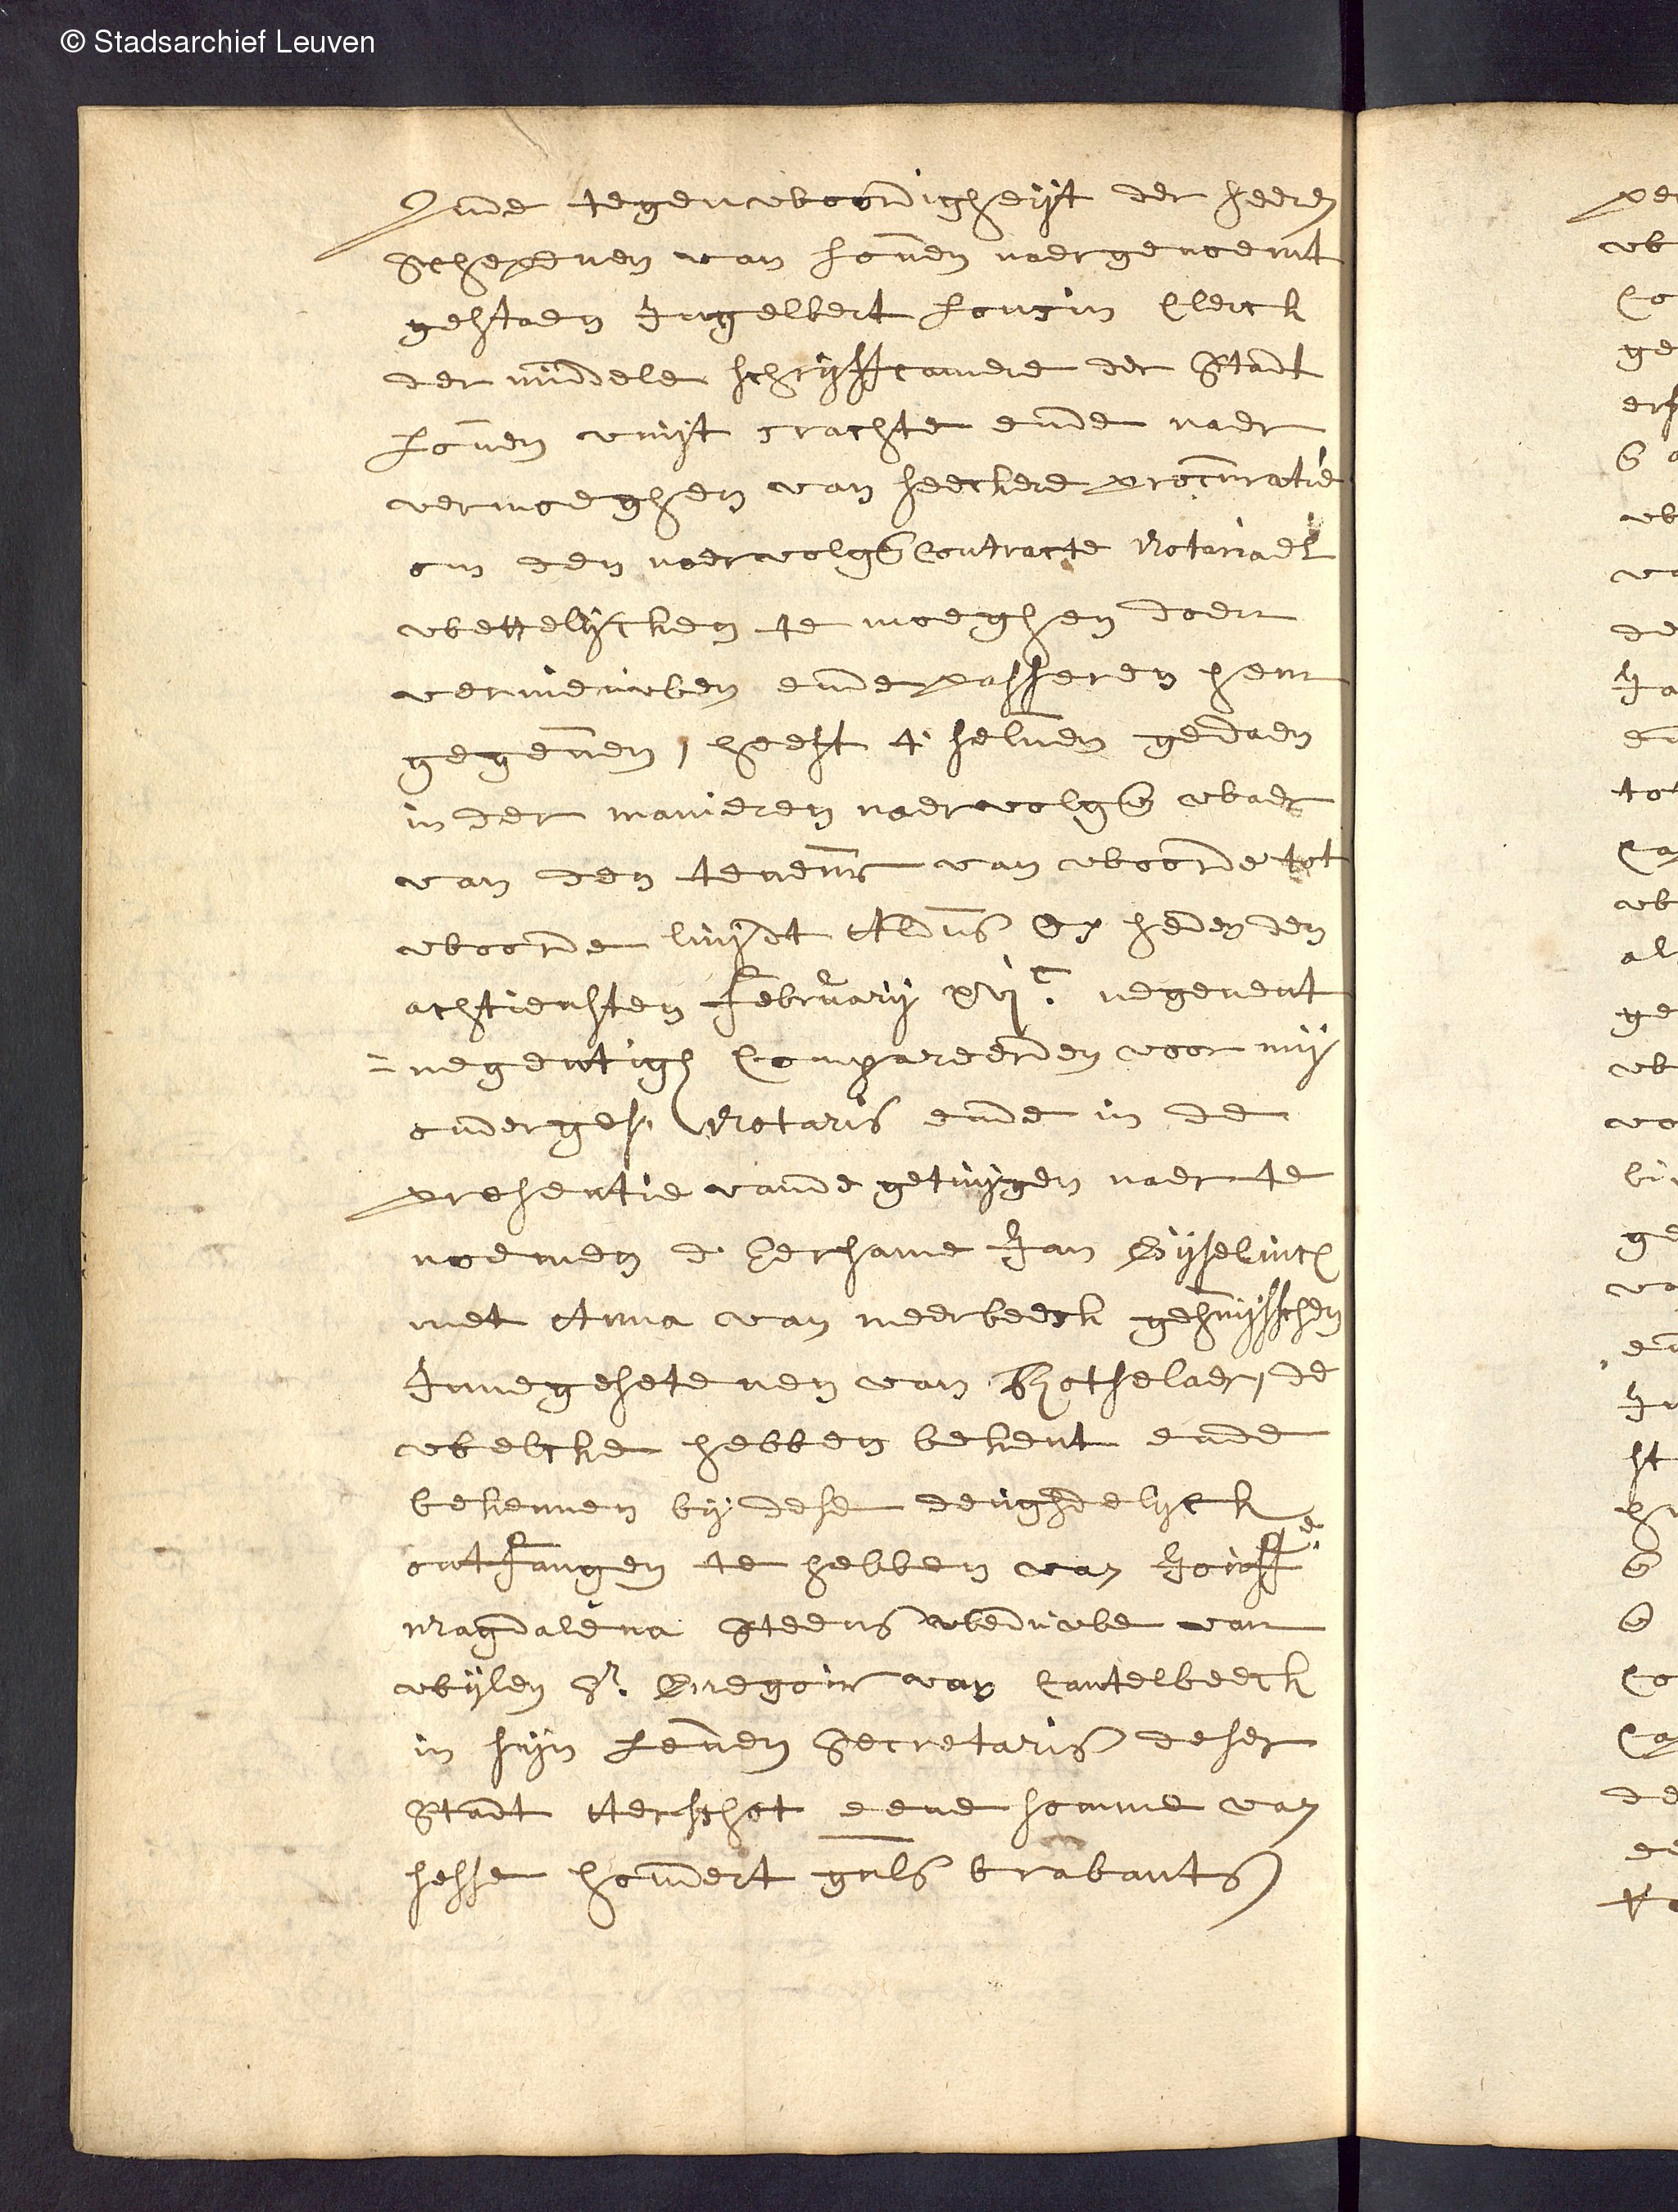 © Stadsarchief Leuven
Inde tegenwoordigheijt der heeren
schepenen van Loven naergenoemt
gestaen Ingelbert Lousin Clerck
der middele schrijffcamere der Stadt
Loven vuijt crachte ende naer
vermoeghen van seeckere procuratie
om den naervolgen Contracte Notariael
wettelijcken te moeghen doen
vernieuwen ende passeren hem
gegeven, heeft t' selven gedaen
in der manieren naervolgen waer
van den teneur van woorde tot
woorde luijdt Aldus Op heden den
achtiensten february xvi c. negenent
=negentigh Compareerden voor mij
onderges. Notaris ende in de
presentie vande getuijgen naer te
noemen d' Eersame Jan Gijselinck
met Anna van meerbeeck gehuijsschen
Innegesetenen van Rotselaer, de
welcke hebben bekent ende
bekennen bij dese deughdelijck
ontfangen te hebben van Joiff.e
Magdalena Steens weduwe van
wijlen Sr. Gregoir van Cantelbeeck
in sijn Leven Secretaris deser
Stadt Aerschot eene somme van
sesse hondert guls brabants